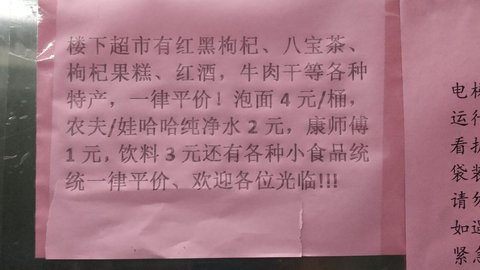 楼下超市有红黑枸杞、八宝茶、
枸杞果糕、红酒，牛肉干等各种
特产，一律平价！泡面 4 元/桶，
农夫/娃哈哈纯净水 2 元，康师傅
1 元，饮料 3 元还有各种小食品统
统一律平价、欢迎各位光临!!!
电梯
运行
看护
袋装
请勿
如遇
紧急